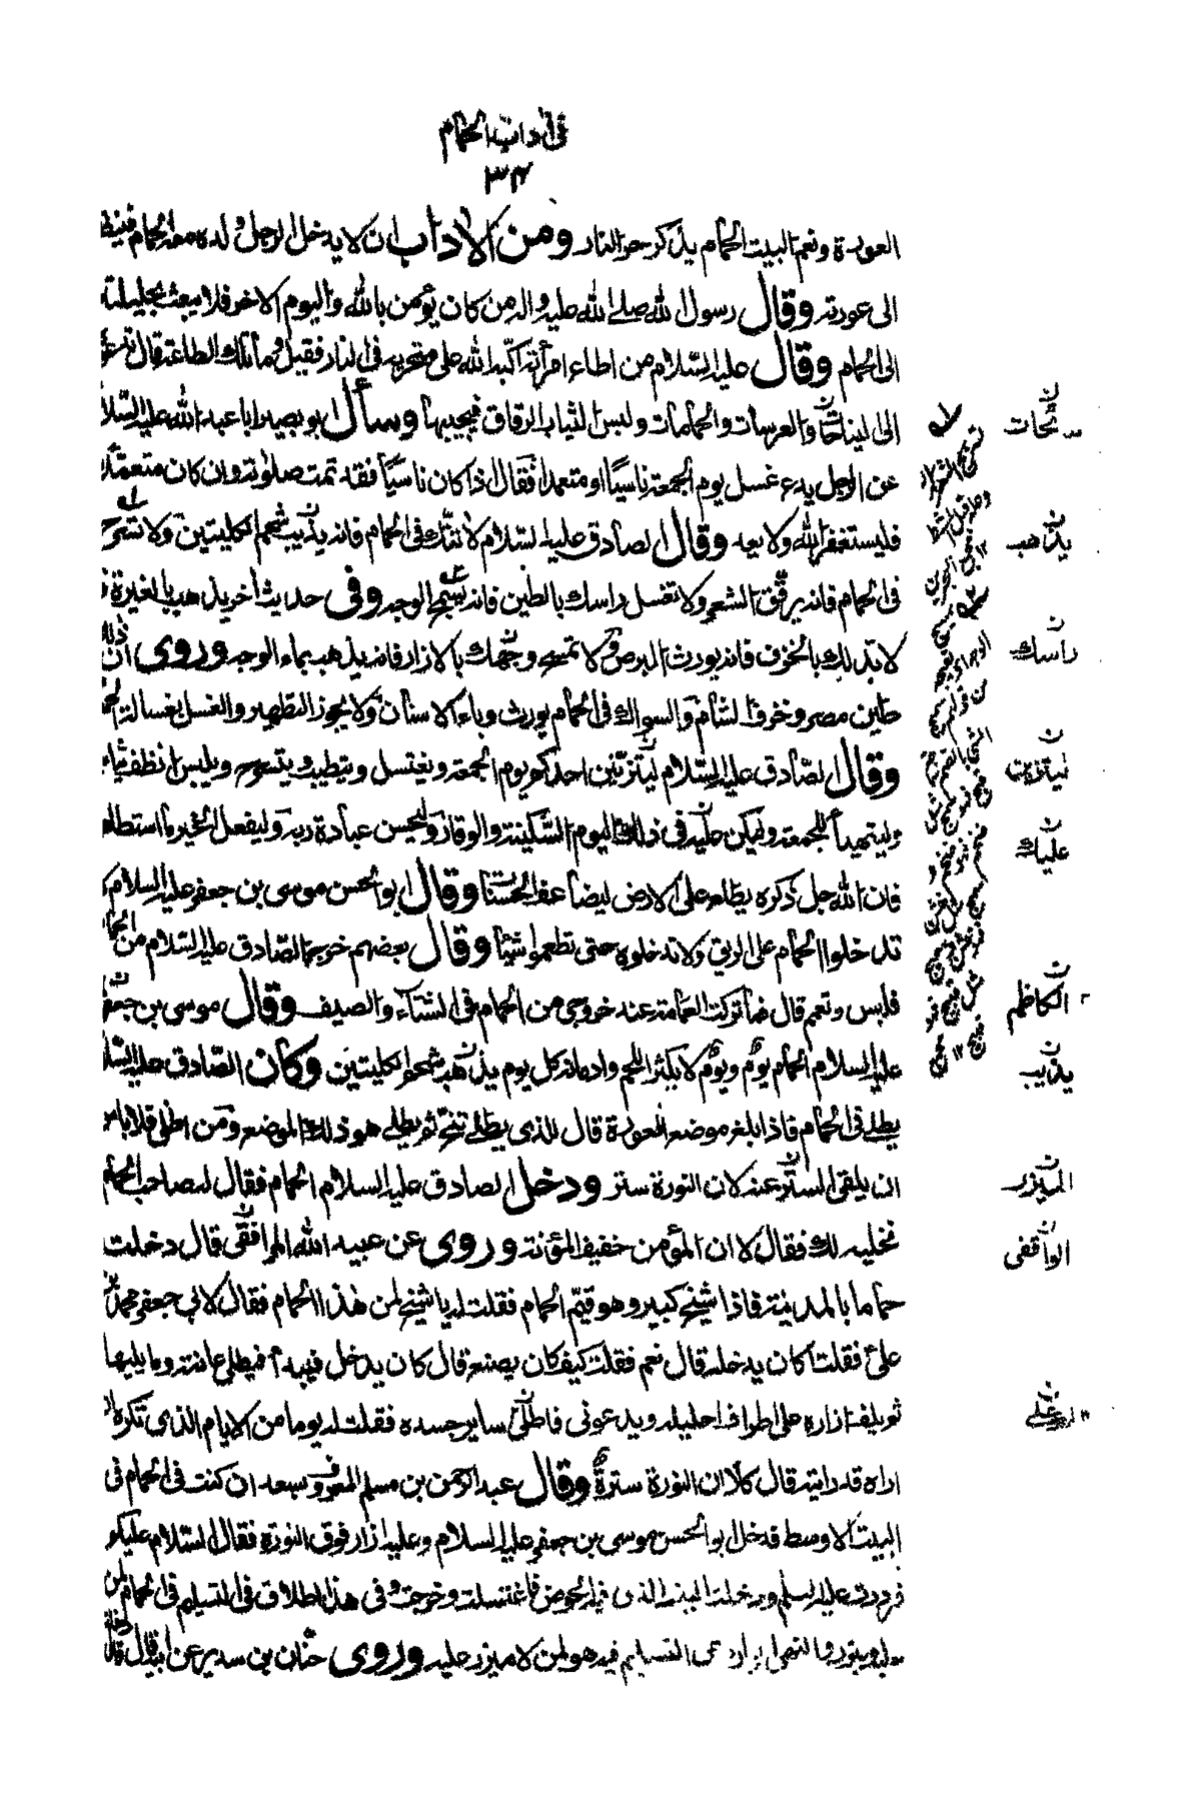 فی اداب الحمام
۳۴
العورة ونعم البیت الحمام یذکر حر النار ومن الاداب ان لا یدخل الرجل ولده معه الحمام فینظر
الی عورته وقال رسول الله صلی الله علیه واله من کان یؤمن بالله والیوم الاخر فلا یبعث بحلیلته
الی الحمام وقال علیه السلام من اطاع امرأته اکبه الله علی منخریه فی النار فقیل وما تلک الطاعة قال تدعوه
الی النیاحات والعرسات والحمامات ولبس الثیاب الرقاق فیجیبها وسأل ابو بصیر ابا عبد الله علیه السلام
عن الرجل یدع غسل یوم الجمعة ناسیًا او متعمدا فقال اذا کان ناسیًا فقد تمت صلوته وان کان متعمدا
فلیستغفر الله ولا یعد وقال الصادق علیه السلام لا تتک فی الحمام فانه یذیب شحم الکلیتین ولا تسرح
فی الحمام فانه یرقق الشعر ولا تغسل راسک بالطین فانه یسمج الوجه وفی حدیث اخر یذهب بالغیرة و
لا تدلک بالخزف فانه یورث البرص ولا تمسح وجهک بالازار فانه یذهب بماء الوجه وروی ان ذلک
طین مصر وخزف الشام والسواک فی الحمام یورث وباء الاسنان ولا یجوز التطهیر والغسل بغسالة الحمام
وقال الصادق علیه السلام لیتزین احدکم یوم الجمعة ویغتسل ویتطیب ویتسرح ویلبس انظف ثیابه
ولیتهیأ للجمعة ولیکن علیه فی ذلک الیوم السکینة والوقار ولیحسن عبادة ربه ولیفعل الخیر ما استطاع
فان الله جل ذکره یطلع علی الارض لیضاعف الحسنات وقال ابو الحسن موسی بن جعفر علیه السلام لا
تدخلوا الحمام علی الریق ولا تدخلوه حتی تطعموا شیئا وقال بعضهم خرج الصادق علیه السلام من الحمام
فلبس وتعمم قال فما ترکت العمامة عند خروجی من الحمام فی الشتاء والصیف وقال موسی بن جعفر
علیه السلام الحمام یوم ویوم لا یکثر اللحم وادمانه کل یوم یذهب شحم الکلیتین وکان الصادق علیه السلام
یطلی فی الحمام فاذا بلغ موضع العورة قال للذی یطلی تنح ثم یطلی هو ذلک الموضع ومن اطلی فلا باس
ان یلقی الستر عنه لان النورة ستر ودخل الصادق علیه السلام الحمام فقال له صاحب الحمام
نخلیه لک فقال لا ان المؤمن خفیف المؤنة وروی عن عبید الله المرافقی قال دخلت
حماما بالمدینة فاذا شیخ کبیر وهو قیم الحمام فقلت له یا شیخ لمن هذا الحمام فقال لابی جعفر محمد بن
علی فقلت اکان یدخله قال نعم فقلت کیف کان یصنع قال کان یدخل فیبدأ فیطلی عانته وما یلیها
ثم یلف ازاره علی اطراف احلیله ویدعونی فاطلی سایر جسده فقلت له یوما من الایام الذی تکره ان
اراه قد رایته قال کلا ان النورة سترة وقال عبد الرحمن بن مسلم المعروف بسعد ان کنت فی الحمام فی
البیت الاوسط فدخل ابو الحسن موسی بن جعفر علیه السلام وعلیه ازار فوق النورة فقال السلام علیکم
فرددت علیه السلام ودخلت البیت الذی فیه الحوض فاغتسلت وخرجت وفی هذا اطلاق فی التسلیم فی الحمام لمن
علیه میزر والنهی الوارد عن التسلیم فیه هو لمن لا میزر علیه وروی حنان بن سدیر عن ابیه قال دخلت
یذهب
راسک
لیتزین
علیک
الکاظم
یذیب
المیزر
الواقفی